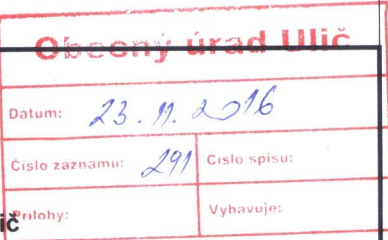 Obecný úrad Ulič
Dátum: 23. 11. 2016
Číslo záznamu: 291 Číslo spisu:
ič
Prílohy: Vybavuje: